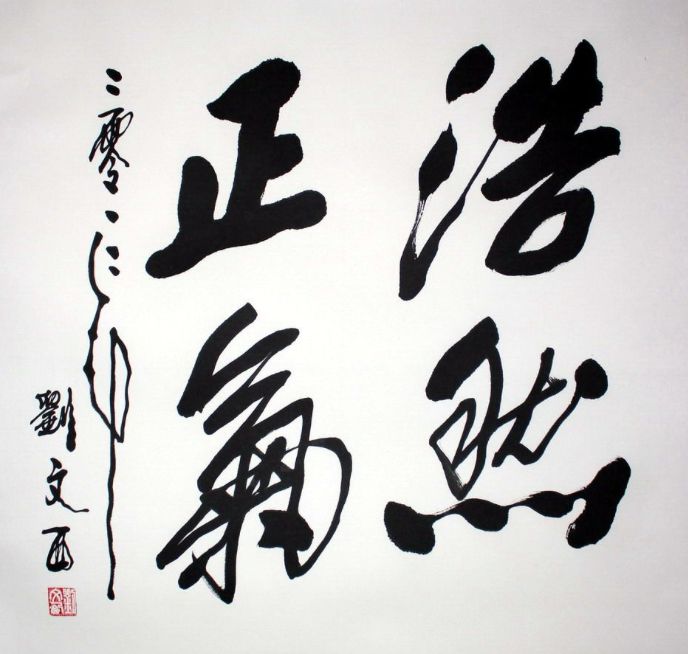 浩然
正氣
二零一二年
劉文西